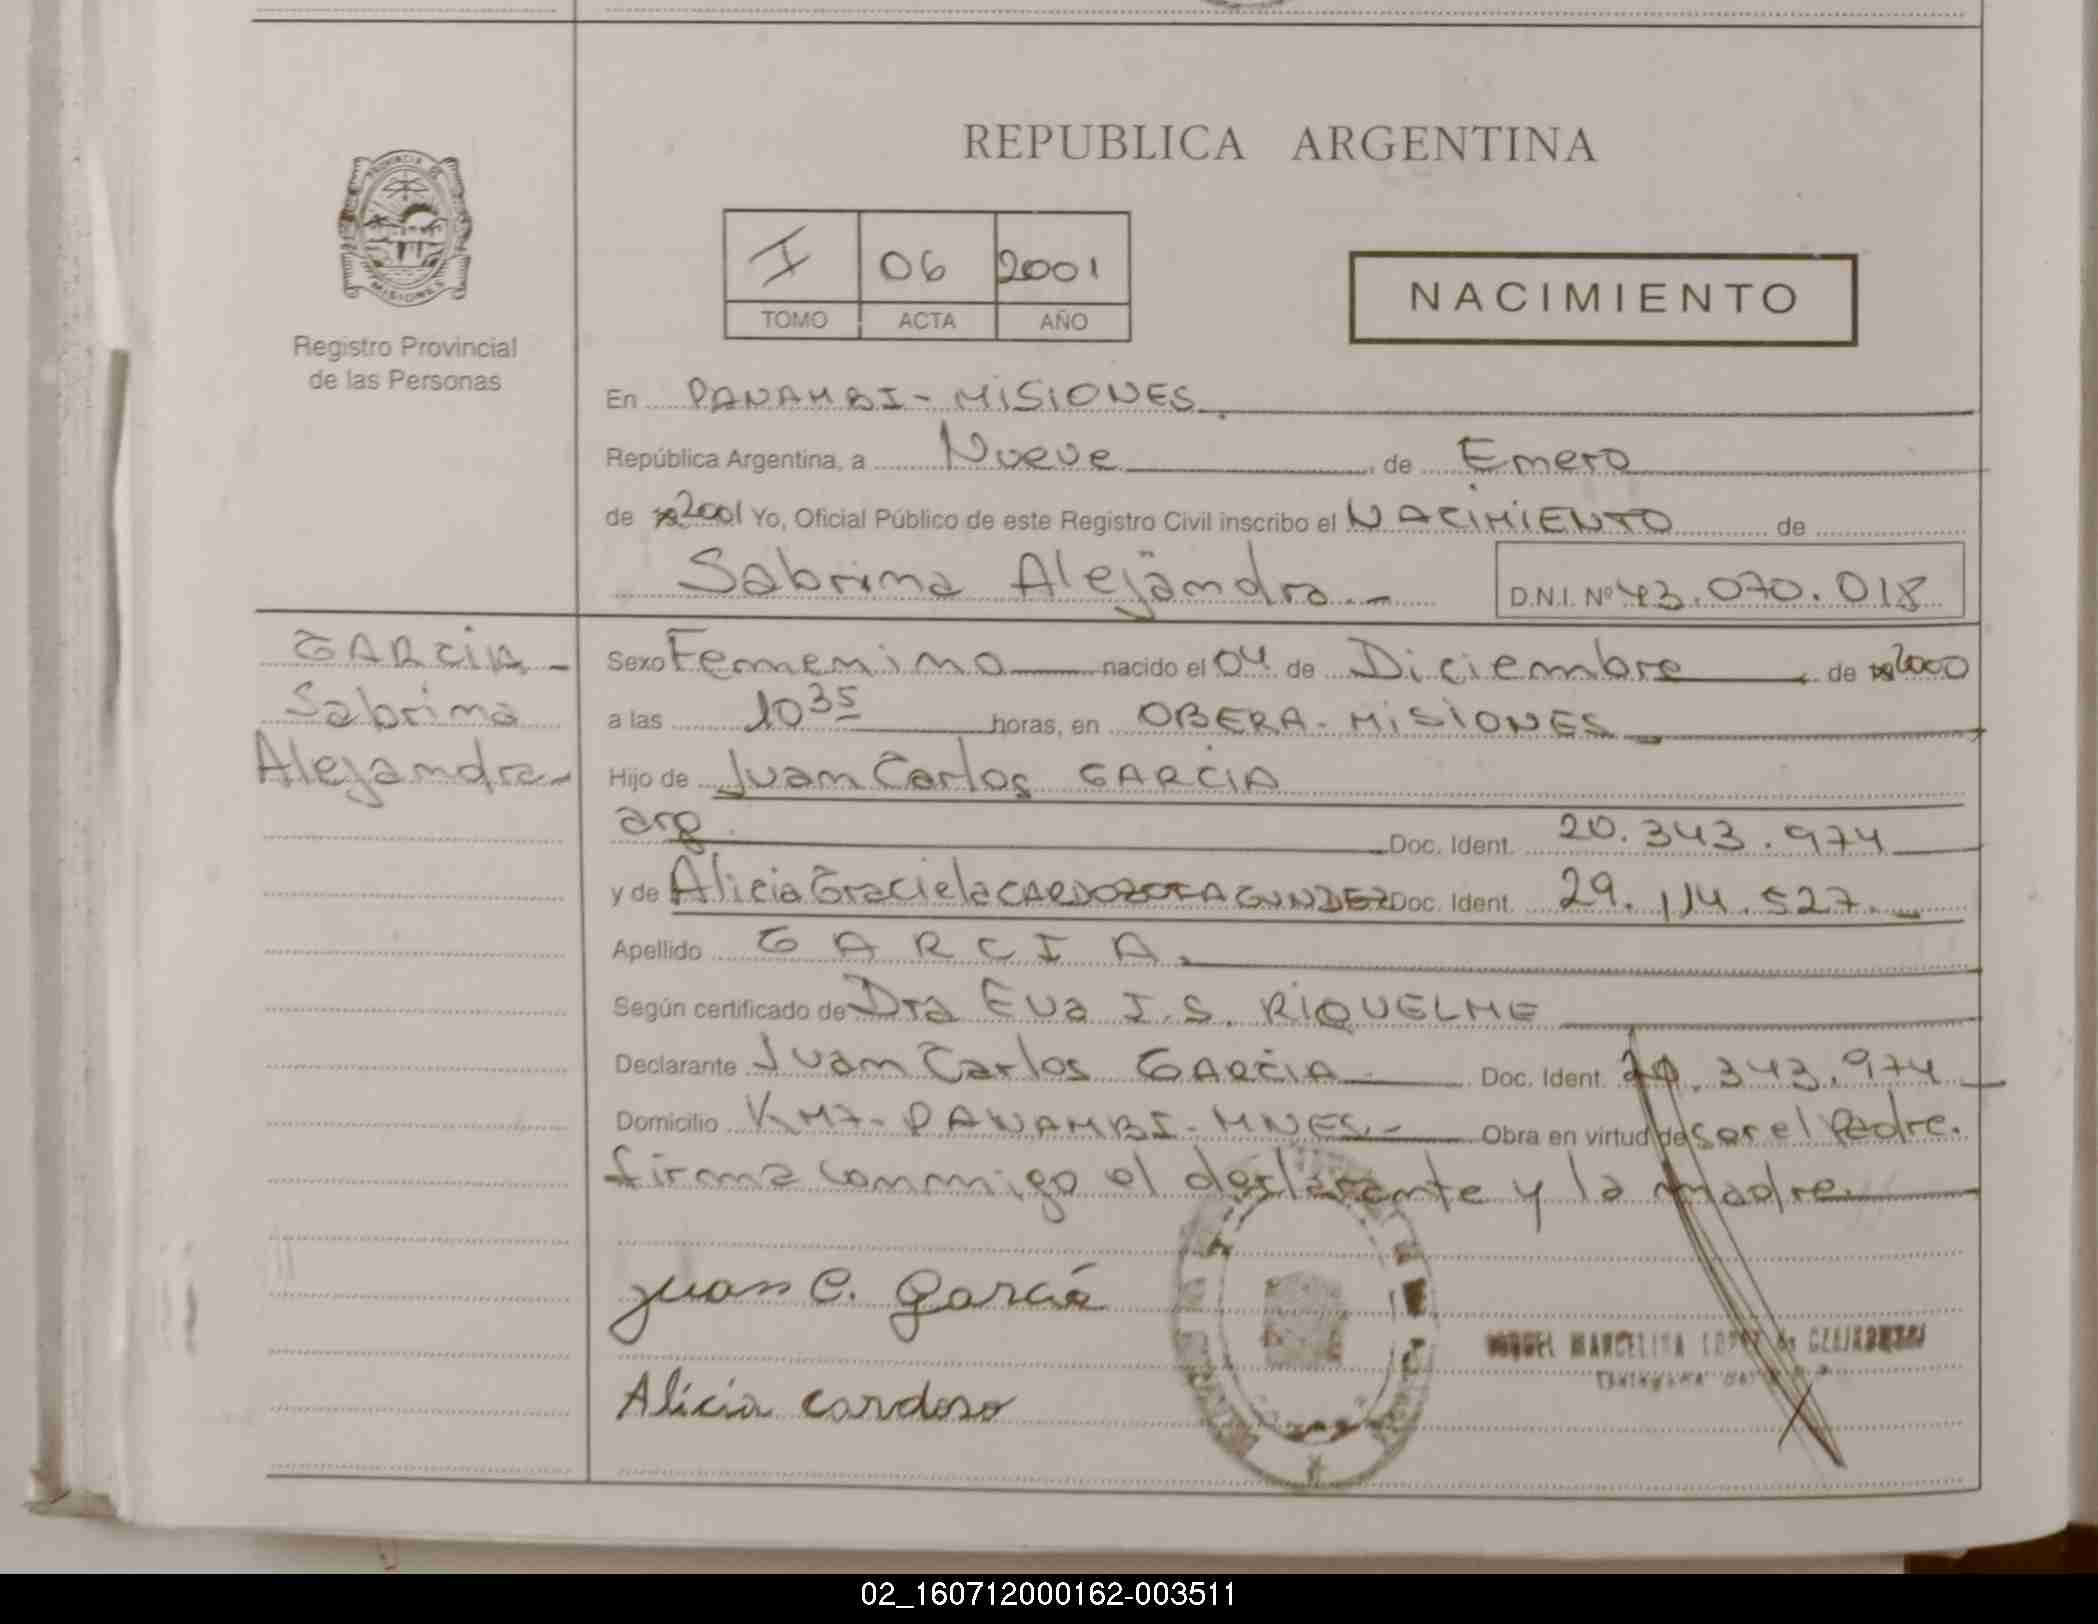 REPUBLICA ARGENTINA
PROVINCIA DE
MISIONES
Registro Provincial
de las Personas
I 06 2001
TOMO ACTA AÑO
NACIMIENTO
En PANAMBI - MISIONES
República Argentina, a Nueve de Enero
de 19 2001 Yo, Oficial Público de este Registro Civil inscribo el NACIMIENTO de
Sabrina Alejandra.-
D.N.I. Nº 43.070.018
GARCIA -
Sabrina
Alejandra-
Sexo Femenino nacido el 04 de Diciembre de 19 2000
a las 10 35 horas, en OBERA - MISIONES
Hijo de Juan Carlos GARCIA
arg. Doc. Ident. 20.343.974
y de Alicia Graciela CARDOZO FAGUNDEZ Doc. Ident. 29.114.527.-
Apellido GARCIA.
Según certificado de Dra Eva I.S. RIQUELME
Declarante Juan Carlos GARCIA Doc. Ident. 20.343.974
Domicilio KM7 - PANAMBI - MNES.- Obra en virtud de ser el Padre.
firma conmigo el declarante y la madre.
Juan C. Garcia
MARCELINA LOPEZ de
Alicia Cardoso
02_160712000162-003511